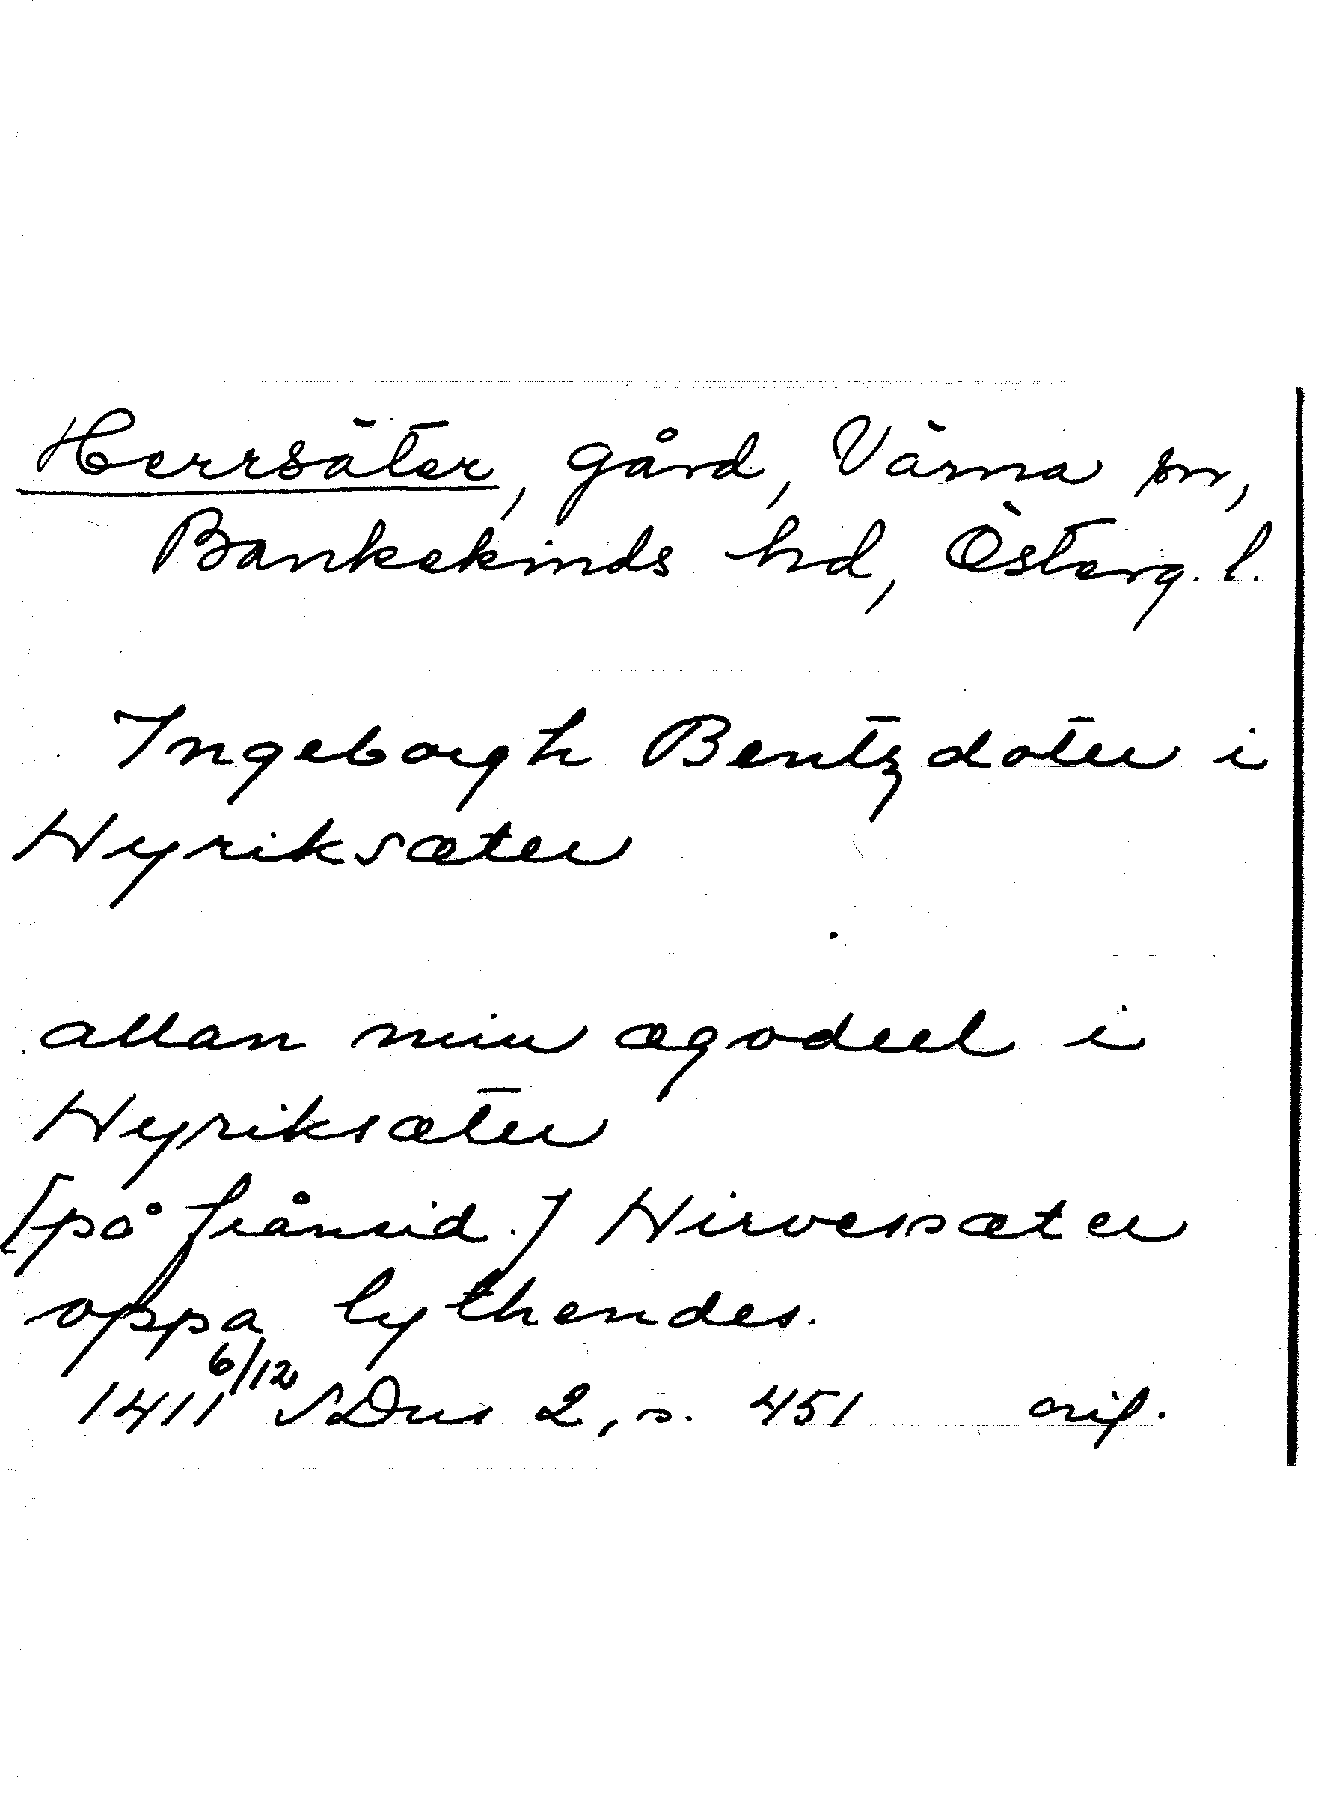 Herrsäter, gård, Värna sn,
Bankekinds hd, Österg. l.
Ingeborgh Bentzdoter i
Hyriksæter
allan min ægodeel i
Hyriksæter
[på frånsid.] Hirvessæter
oppa lythendes.
1411 6/12 SDns 2, s. 451 orig.